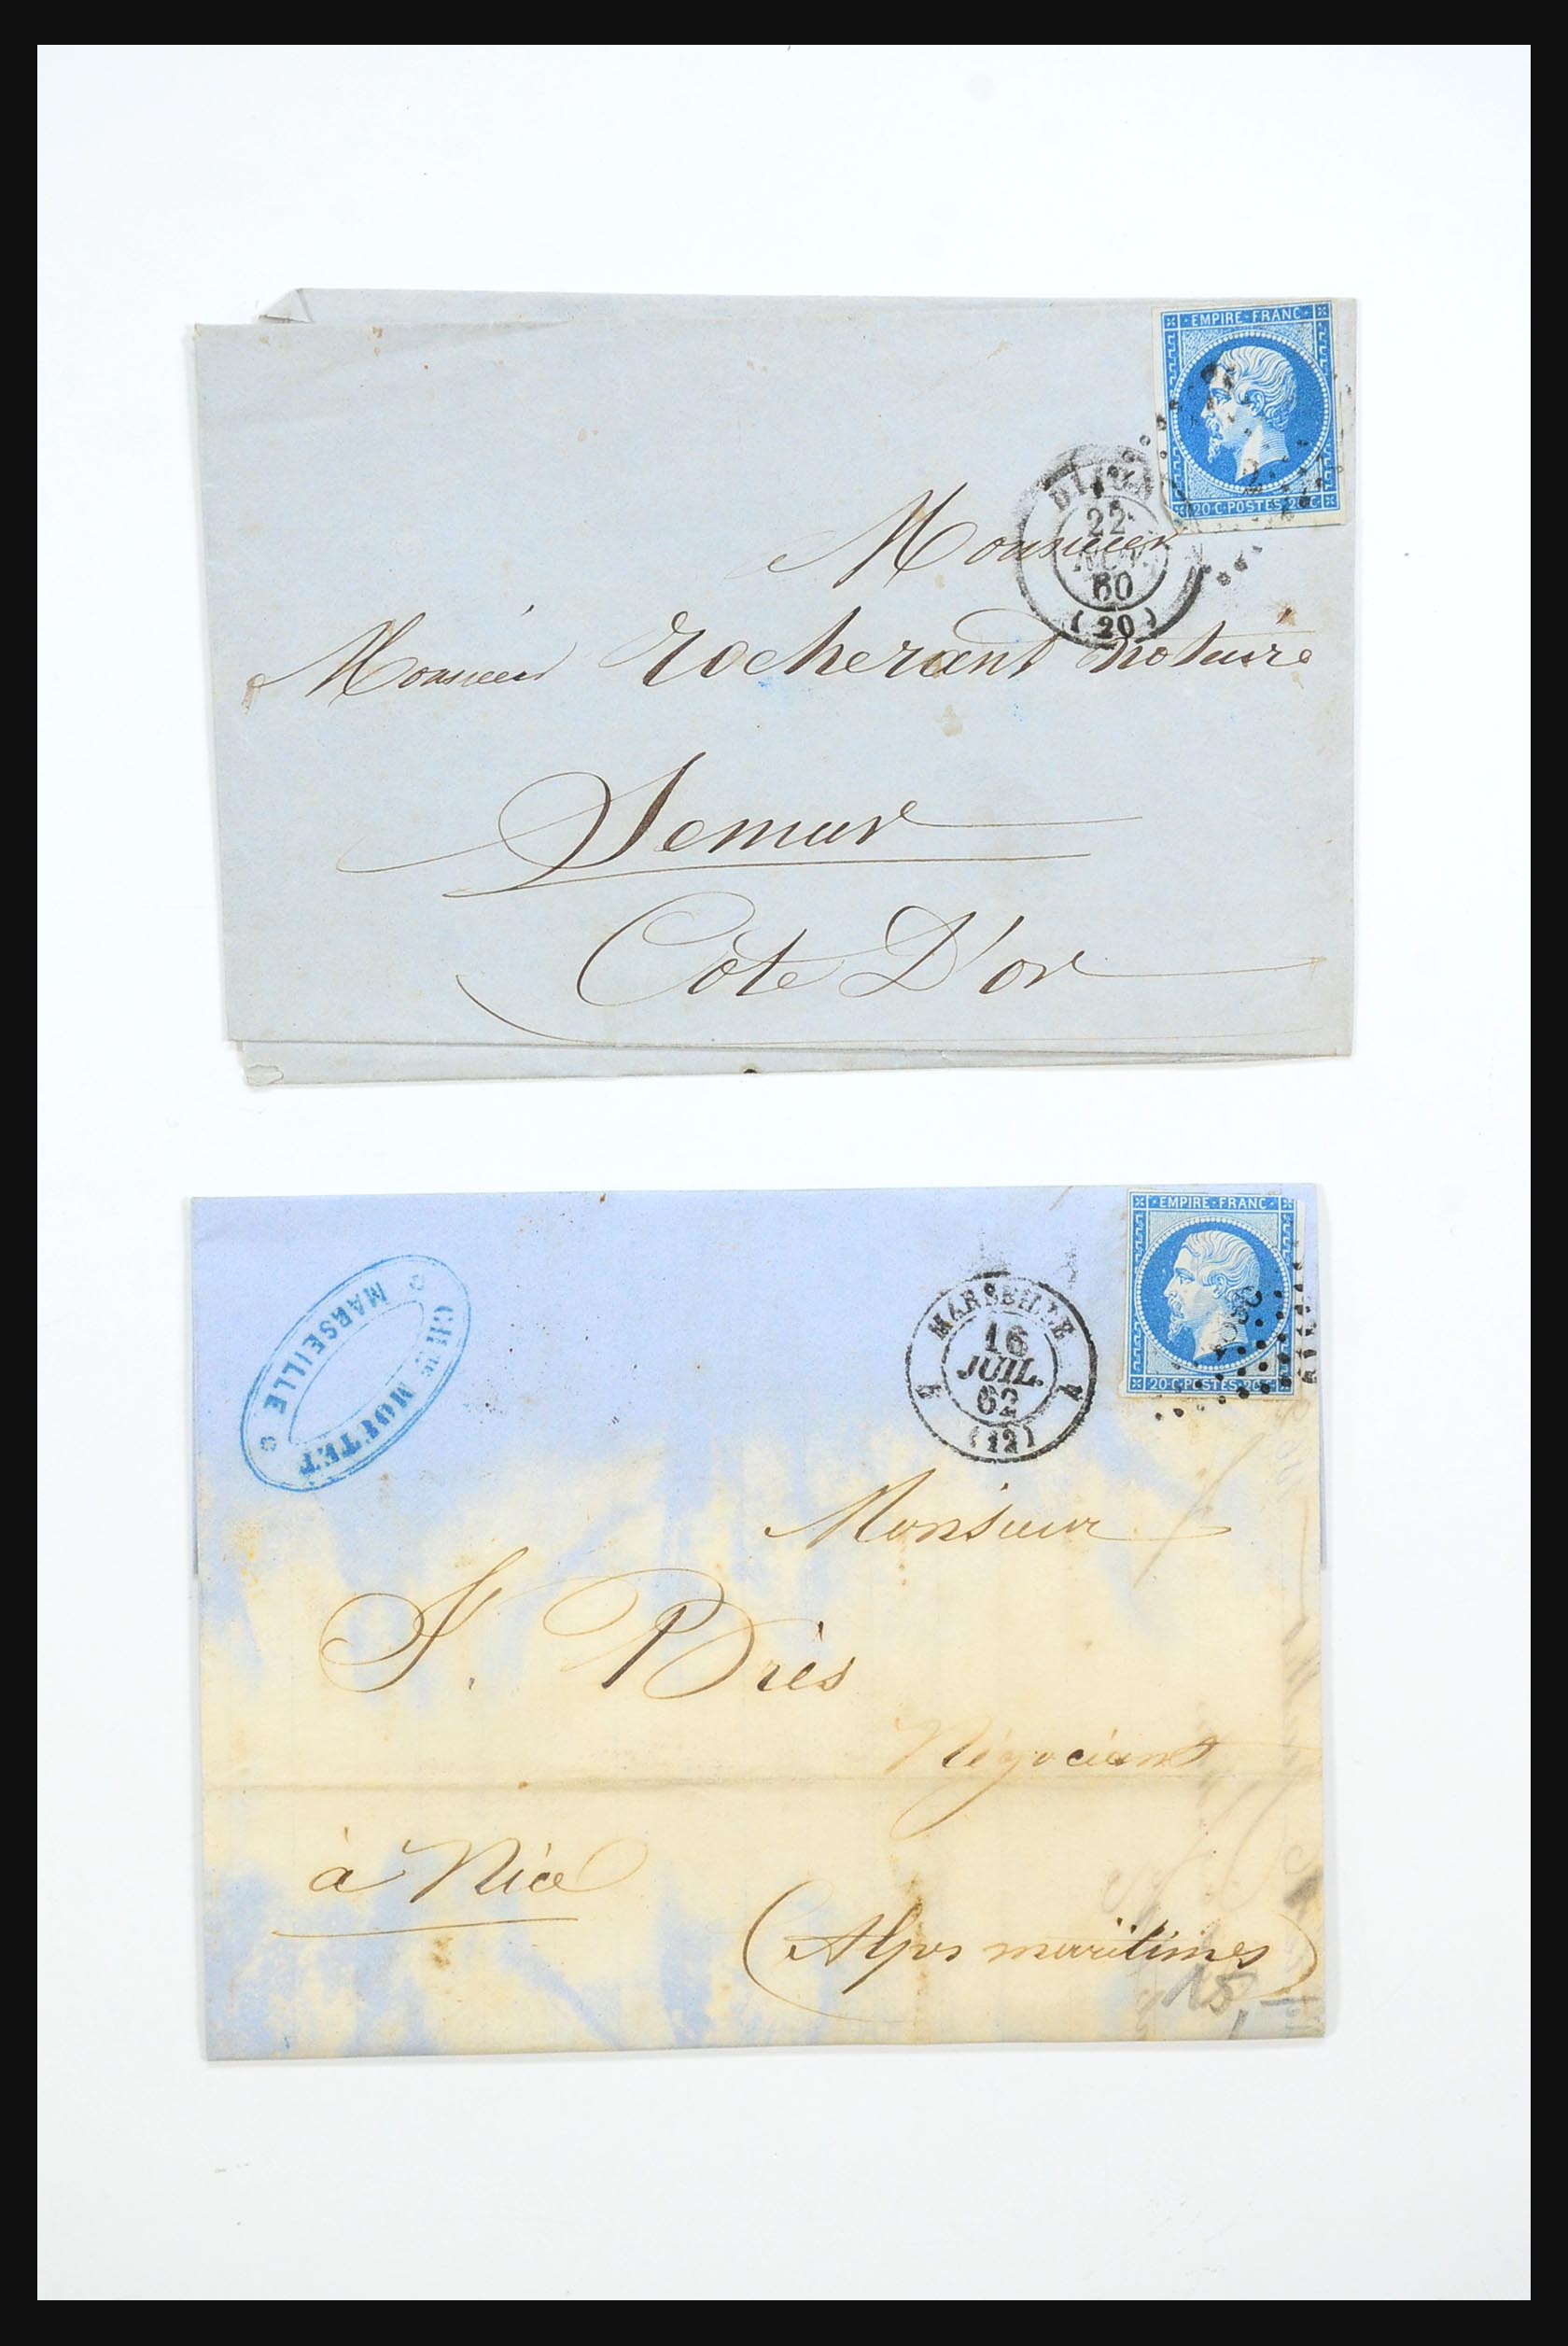 EMPIRE·FRANC
20·C·POSTES·20·C
DIJON
22
NOV.
60
(20)
Monsieur
Monsieur Rocherant notaire
Semur
Côte D'or
EMPIRE·FRANC
20·C·POSTES·20·C
CH^les MOUTET
MARSEILLE
MARSEILLE
16
JUIL.
62
(12)
Monsieur
F. Brès
Négociant
à Nice
(Alpes maritimes)
15,-